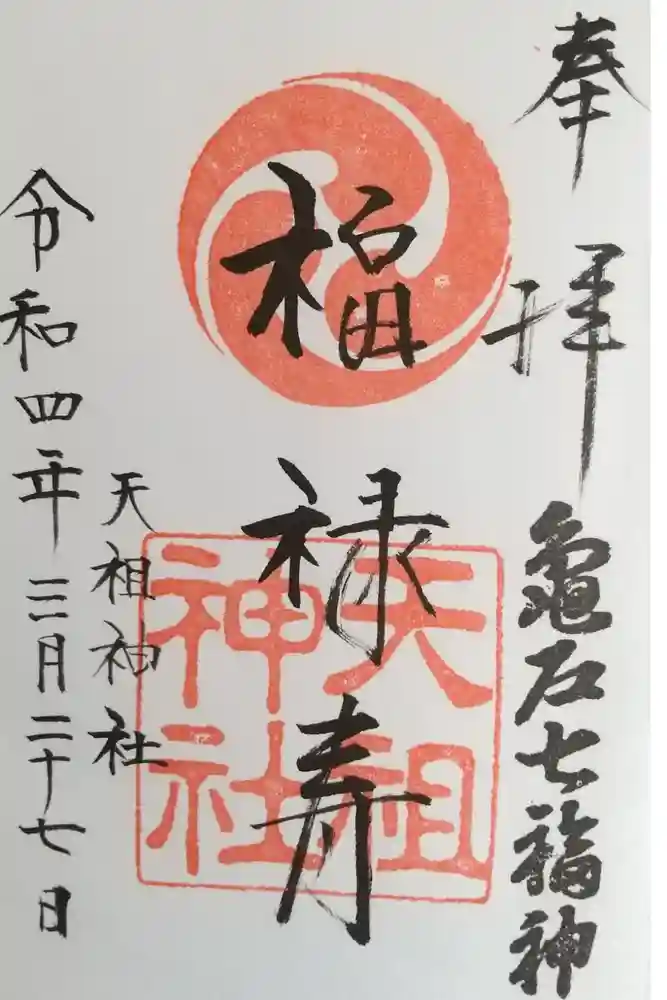 奉拝
亀戸七福神
福禄寿
天祖
神社
天祖神社
令和四年三月二十七日